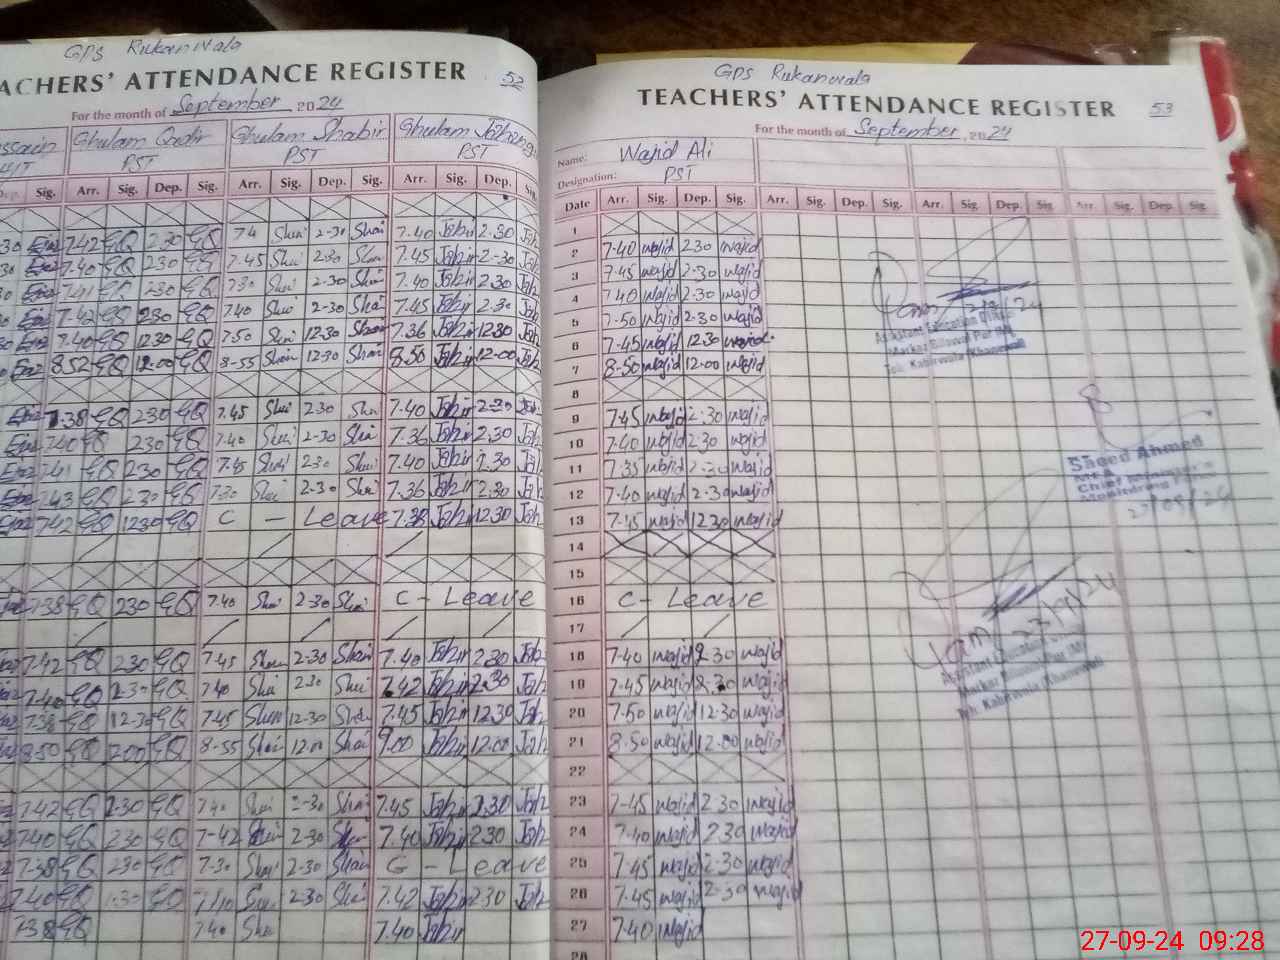 GPS Rukanwala
TEACHERS' ATTENDANCE REGISTER 52
For the month of September 2024
Ghulam Qadir Ghulam Shabir Ghulam
PST PST PST
Dep. Sig. Arr. Sig. Dep. Sig. Arr. Sig. Dep. Sig. Arr. Sig. Dep.
7.42 GQ 2.30 GQ 7.4 Shai 2-30 Shai 7.40 Jahir 2.30
7.40 GQ 2.30 GQ 7.45 Shai 2.30 Shai 7.45 Jahir 2-30
7.41 GQ 2.30 GQ 7.30 Shai 2-30 Shai 7.40 Jahir 2.30
7.42 GQ 2.30 GQ 7.40 Shai 2-30 Shai 7.45 Jahir 2.30
7.40 GQ 12.30 GQ 7.50 Shai 12.30 Shai 7.36 Jahir 12.30
8.52 GQ 12.00 GQ 8-55 Shai 12-30 Shai 8.50 Jahir 12-00
7.38 GQ 2.30 GQ 7.45 Shai 2.30 Shai 7.40 Jahir 2-30
7.40 GQ 2.30 GQ 7.40 Shai 2-30 Shai 7.36 Jahir 2.30
7.41 GQ 2.30 GQ 7.45 Shai 2-30 Shai 7.40 Jahir 2.30
7.43 GQ 2.30 GQ 7.30 Shai 2-30 Shai 7.36 Jahir 2.30
7.42 GQ 12.30 GQ C - Leave 7.38 Jahir 12.30
7.38 GQ 2.30 GQ 7.40 Shai 2-30 Shai C - Leave
7.42 GQ 2.30 GQ 7.45 Shai 2-30 Shai 7.40 Jahir 2.30
7.40 GQ 2.30 GQ 7.40 Shai 2.30 Shai 7.42 Jahir 2.30
7.38 GQ 12.30 GQ 7.45 Shai 12-30 Shai 7.45 Jahir 12.30
8.50 GQ 12.00 GQ 8-55 Shai 12.00 Shai 9.00 Jahir 12.00
7.42 GQ 2.30 GQ 7.40 Shai 2-30 Shai 7.45 Jahir 2.30
7.40 GQ 2.30 GQ 7-42 Shai 2-30 Shai 7.40 Jahir 2.30
7.38 GQ 2.30 GQ 7-30 Shai 2-30 Shai C - Leave
7.40 GQ 2.30 GQ 2-30 Shai 7.42 Jahir 2.30
7.38 GQ 7.40 Shai 7.40 Jahir
GPS Rukanwala
TEACHERS' ATTENDANCE REGISTER 53
For the month of September 2024
Name: Wajid Ali
Designation: PST
Date Arr. Sig. Dep. Sig. Arr. Sig. Dep. Sig. Arr. Sig. Dep. Sig. Arr. Sig. Dep. Sig.
1
2 7-40 wajid 2.30 wajid
3 7.45 wajid 2.30 wajid
4 7.40 wajid 2.30 wajid
5 7-50 wajid 2-30 wajid
6 7-45 wajid 12.30 wajid
7 8-50 wajid 12.00 wajid
8
9 7.45 wajid 2.30 wajid
10 7.40 wajid 2.30 wajid
11 7.35 wajid 2.30 wajid
12 7-40 wajid 2.30 wajid
13 7-45 wajid 12.30 wajid
14
15
16 C - Leave
17
18 7-40 wajid 2.30 wajid
19 7-45 wajid 2.30 wajid
20 7-50 wajid 12.30 wajid
21 8.50 wajid 12.00 wajid
22
23 7-45 wajid 2.30 wajid
24 7-40 wajid 2.30 wajid
25 7.45 wajid 2-30 wajid
26 7-45 wajid 2-30 wajid
27 7-40 wajid
28
Assistant Education Officer
Teh. Kabirwala
Saeed Ahmed
MEA
Chief Minister's
Monitoring Force
23/9/24
Assistant Education
Teh. Kabirwala
27-09-24 09:28